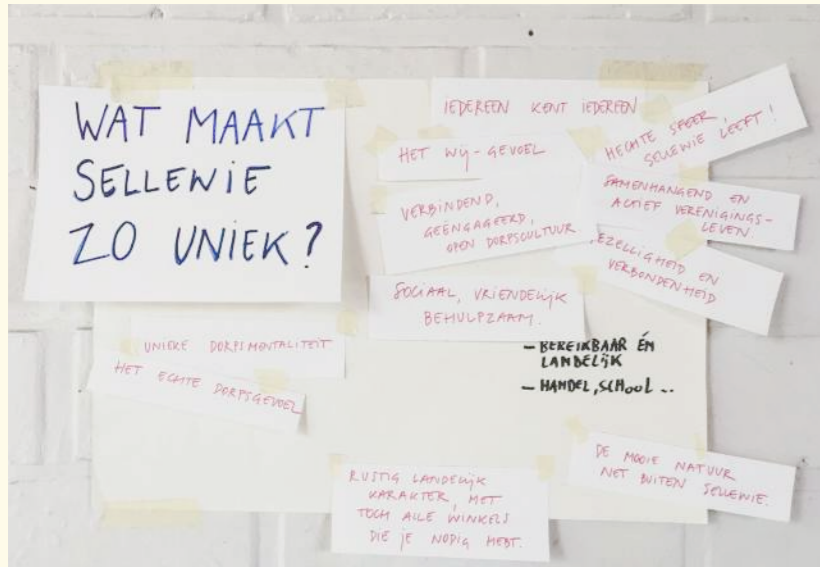 WAT MAAKT
SELLEWIE
ZO UNIEK?
IEDEREEN KENT IEDEREEN
HET WIJ-GEVOEL
HECHTE SFEER,
SELLEWIE LEEFT!
VERBINDEND,
GEËNGAGEERD,
OPEN DORPSCULTUUR
SAMENHANGEND EN
ACTIEF VERENIGINGS-
LEVEN.
EZELLIGHEID EN
VERBONDENHEID
SOCIAAL, VRIENDELIJK
BEHULPZAAM.
UNIEKE DORPSMENTALITEIT
HET ECHTE DORPSGEVOEL
- BEREIKBAAR ÉN
LANDELIJK
- HANDEL, SCHOOL ..
RUSTIG LANDELIJK
KARAKTER, MET
TOCH ALLE WINKELS
DIE JE NODIG HEBT.
DE MOOIE NATUUR
NET BUITEN SELLEWIE.